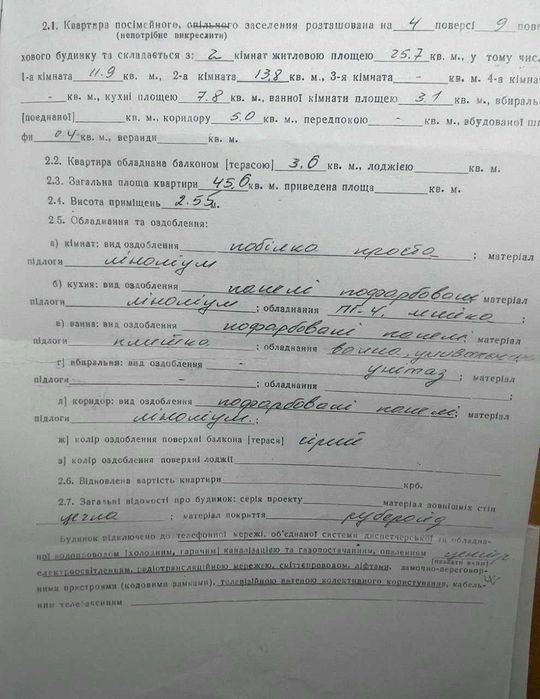 2.1. Квартира посімейного, спільного заселення розташована на 4 поверсі 9 пове
(непотрібне викреслити)
хового будинку та складається з: 2 кімнат житловою площею 25.7 кв. м., у тому чис
1-а кімната 11.9 кв. м., 2-а кімната 13,8 кв. м., 3-я кімната - кв. м. 4-а кімна
- кв. м., кухні площею 7.8 кв. м., ванної кімнати площею 3.1 кв. м., вбираль
[поєднаної] кв. м., коридору 5.0 кв. м., передпокою - кв. м., вбудованої ша
фи 0.4 кв. м., веранди кв. м.
2.2. Квартира обладнана балконом [терасою] 3.6 кв. м., лоджією кв. м.
2.3. Загальна площа квартири 45,6 кв. м. приведена площа кв. м.
2.4. Висота приміщень 2.55 м.
2.5. Обладнання та оздоблення:
а) кімнат: вид оздоблення побілка проста ; матеріал
підлоги лінолiум
б) кухня: вид оздоблення панелі пофарбовані матеріал
підлоги лінолiум ; обладнання ПГ-4, мийка ;
в) ванна: вид оздоблення пофарбовані панелі; матеріал
підлоги плитка ; обладнання ванна, умивальник
г) вбиральня: вид оздоблення - унітаз ; матеріал
підлоги - ; обладнання ;
д) коридор: вид оздоблення пофарбовані панелі; матеріал
підлоги лінолiум. ;
ж) колір оздоблення поверхні балкона [тераси] сірий
з) колір оздоблення поверхні лоджії
2.6. Відновлена вартість квартири крб.
2.7. Загальні відомості про будинок: серія проекту матеріал зовнішніх стін
цегла ; матеріал покриття рубероїд
Будинок підключено до телефонної мережі, об'єднаної системи диспетчерської та обладна-
ної водопроводом [холодним, гарячим] каналізацією та газопостачанням, опаленням центр
[назвати яким]
електроосвітленням, радіотрансляційною мережею, сміттєпроводом, ліфтами, замочно-переговор-
ними пристроями (кодовими замками), телевізійною антеною колективного користування, кабель-
ним телебаченням